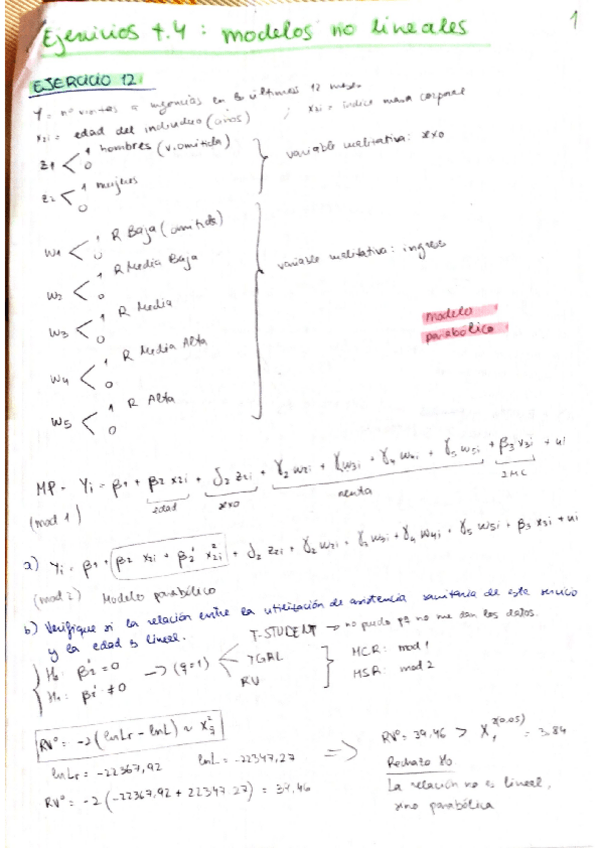 Ejercicios t.4 : modelos no lineales
1
EJERCICIO 12:
Y = nº visitas a urgencias en los últimos 12 meses
x2i = edad del individuo (años) ; x3i = índice masa corporal
z1 < 1 hombres (v. omitida) 0
z2 < 1 mujeres 0
variable cualitativa: sexo
W1 < 1 R Baja (omitida) 0
W2 < 1 R Media Baja 0
W3 < 1 R Media 0
W4 < 1 R Media Alta 0
W5 < 1 R Alta 0
variable cualitativa: ingreso
modelo
parabólico
MP - Yi = β1 + β2 x2i + δ2 z2i + γ2 w2i + γ3 w3i + γ4 w4i + γ5 w5i + β3 x3i + ui
(mod 1) edad sexo renta IMC
a) Yi = β1 + β2 x2i + β2' x2i² + δ2 z2i + γ2 w2i + γ3 w3i + γ4 w4i + γ5 w5i + β3 x3i + ui
(mod 2) Modelo parabólico
b) Verifique si la relación entre la utilización de asistencia sanitaria de este servicio
y la edad es lineal.
T-STUDENT → no puedo pq no me dan los datos.
H0: β2' = 0
H1: β2' ≠ 0
→ (q=1) < TGRL RV
MCR: mod 1
MSR: mod 2
RVº = -2 (lnLr - lnL) ~ X²
lnLr = -22367,92 lnL = -22347,27
RVº = -2 (-22367,92 + 22347,27) =
⇒ RVº = 39,46 > X1²(0,05) = 3,84
Rechazo H0
La relación no es lineal,
sino parabólica